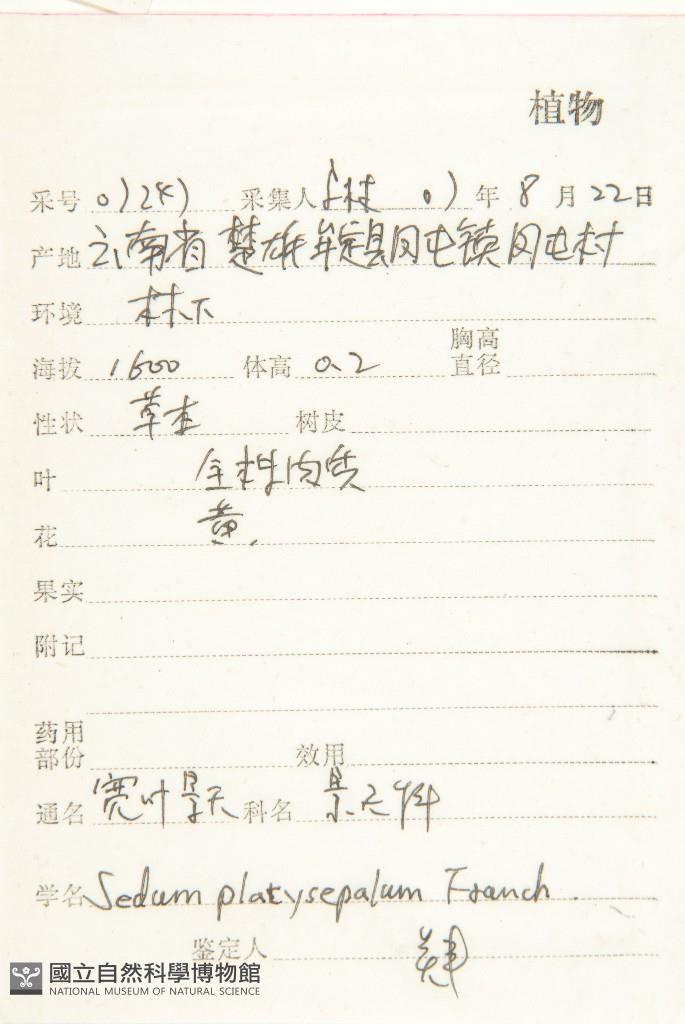 植物
采号 采集人 年 8 月 22 日
产地 云南省 楚雄 牟定县凤屯镇凤屯村
环境 林下
海拔 1600 体高 0.2 胸高直径
性状 草本 树皮
叶 全株肉质
花 黄
果实
附记
药用部份 效用
通名 宽叶景天 科名 景天科
学名 Sedum platysepalum Franch.
鉴定人
國立自然科學博物館
NATIONAL MUSEUM OF NATURAL SCIENCE